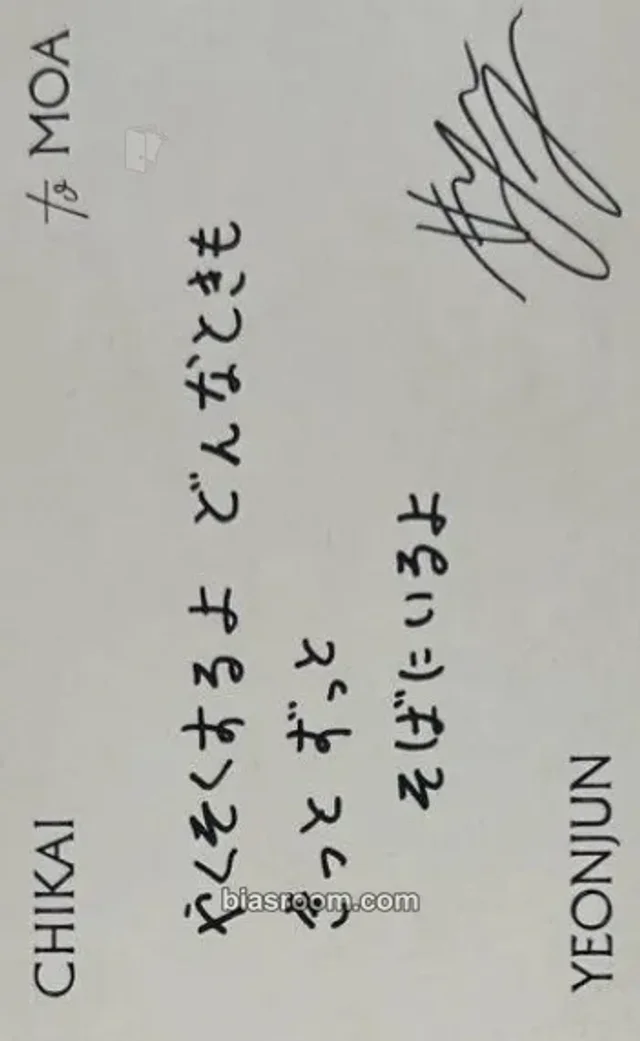 CHIKAI
to MOA
やくそくするよ どんなときも
ずっと ずっと
そばにいるよ
YEONJUN
biasroom.com